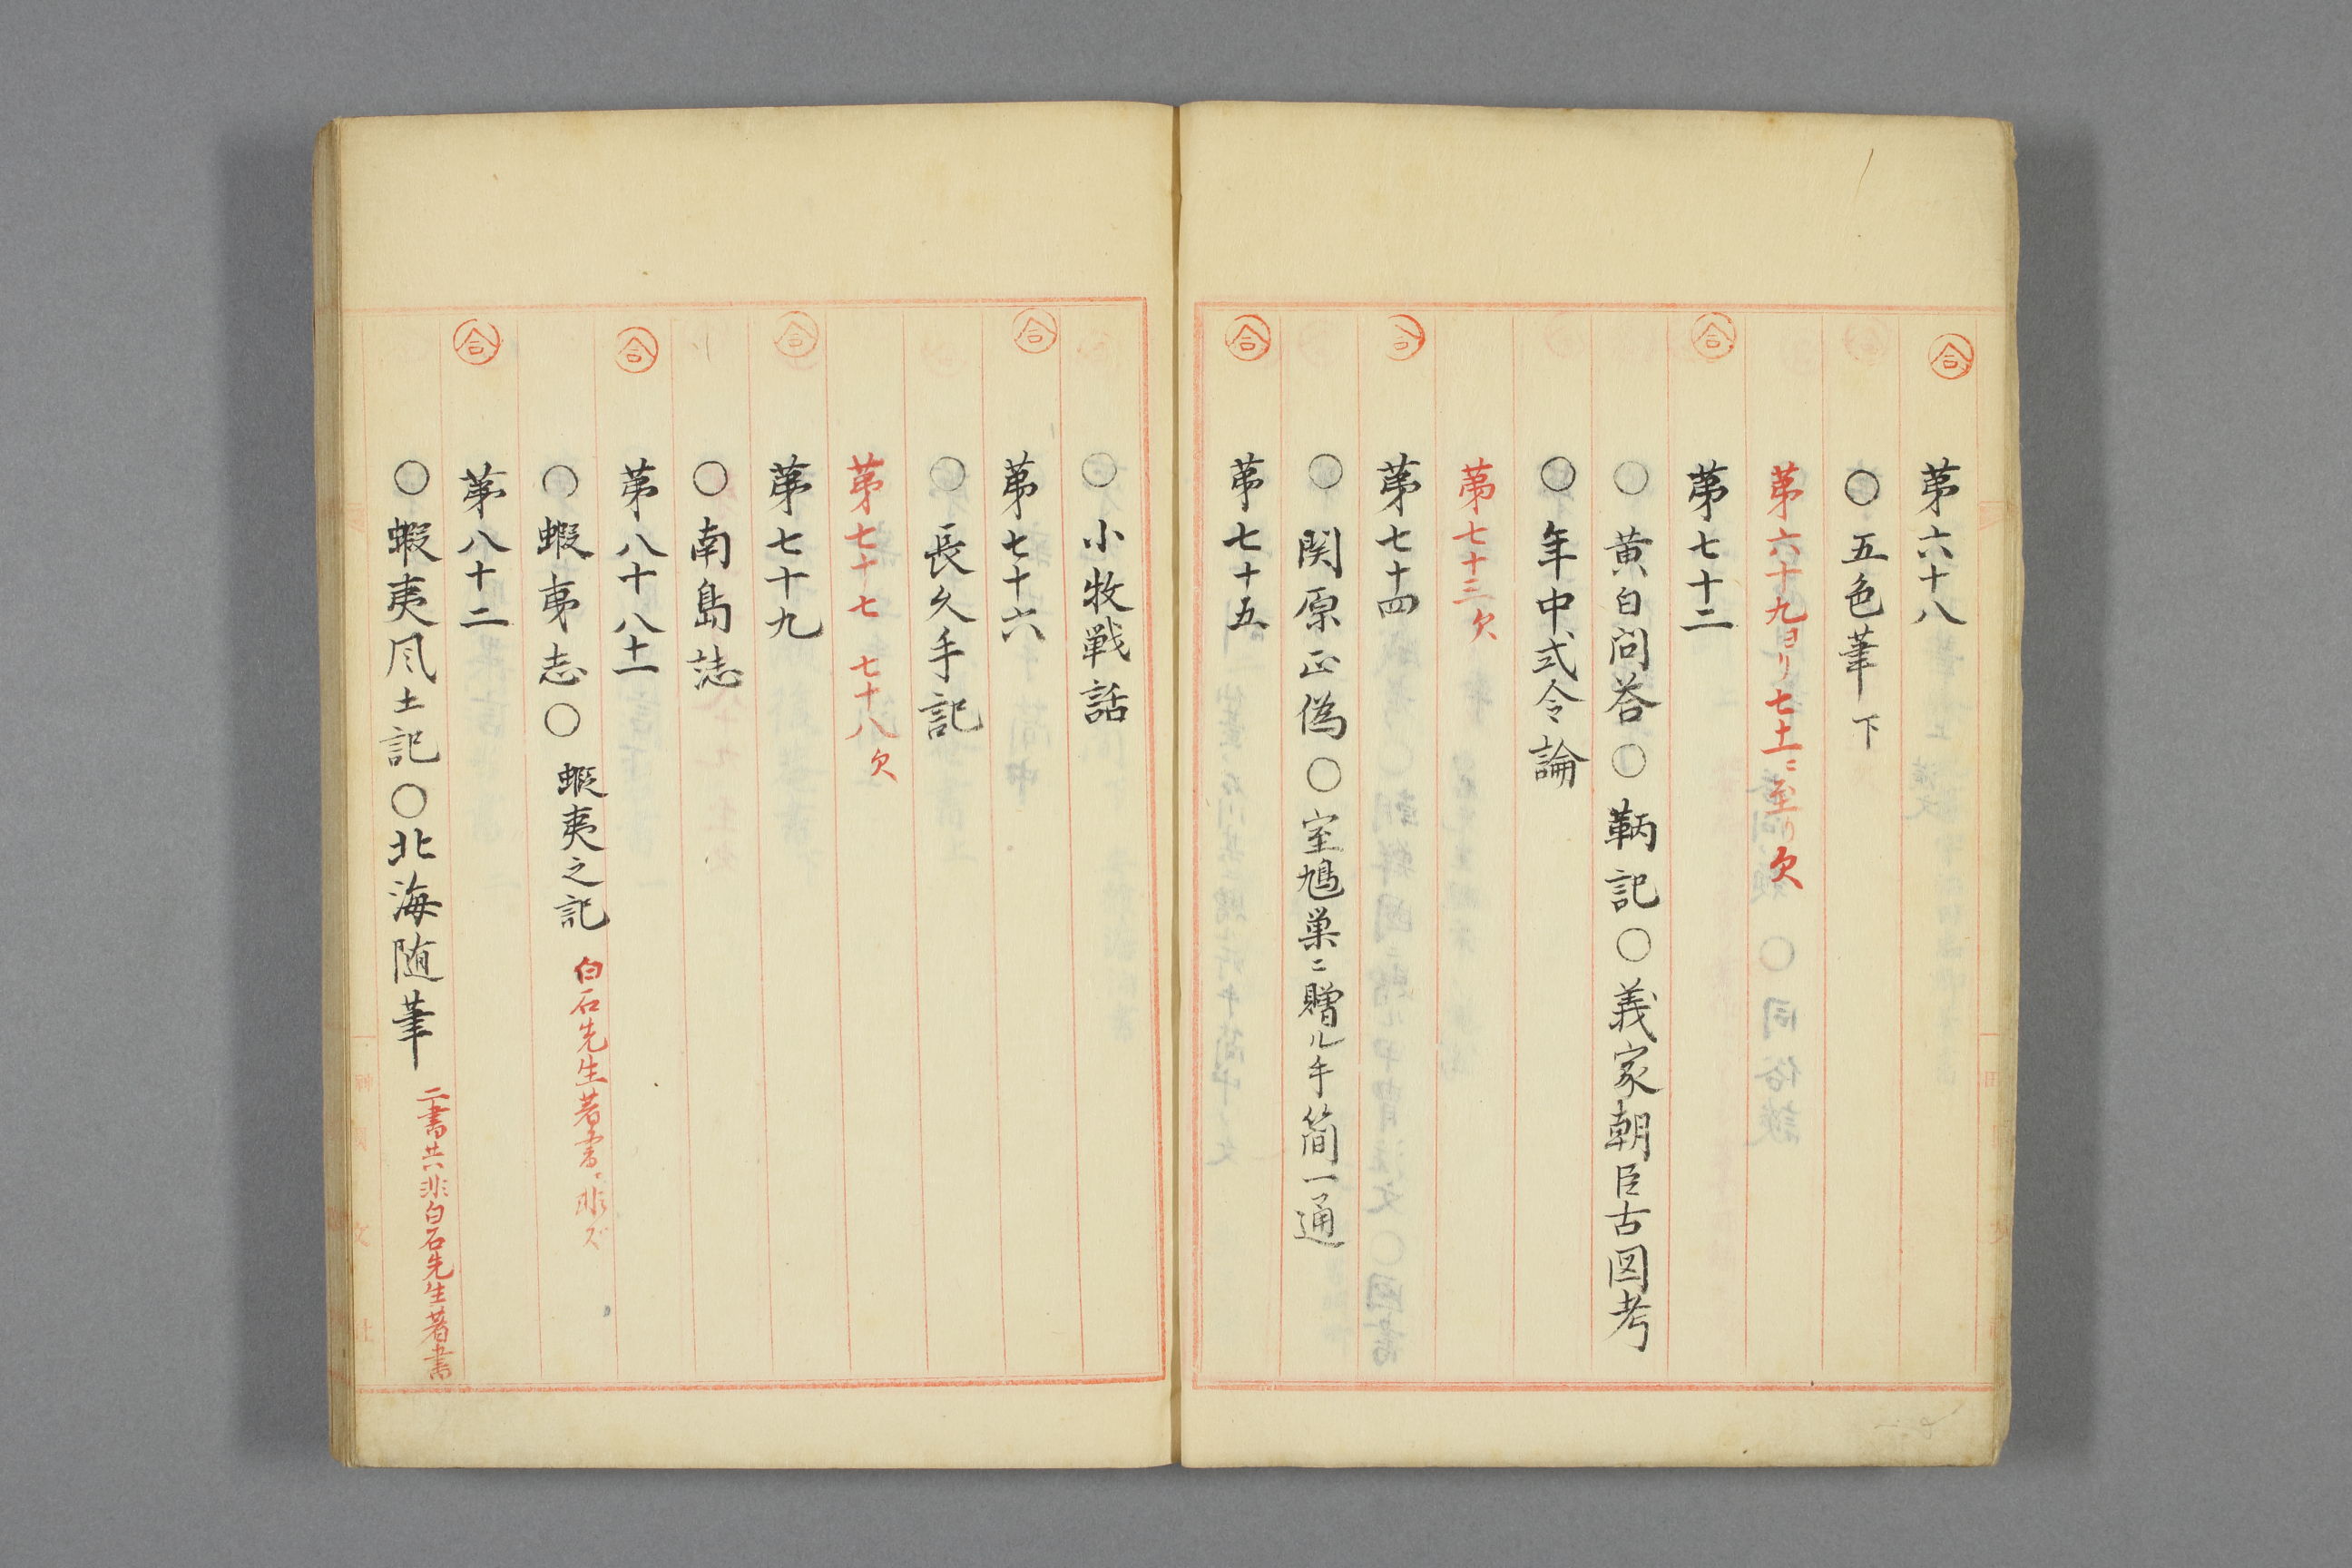 合 第六十八
○五色筆 下
第六十九ヨリ七十一ニ至リ欠
合 第七十二
○黄白問答○鞆記○義家朝臣古図考
○年中式令論
第七十三欠
合 第七十四
○関原正偽○室鳩巣ニ贈ル手简一通
合 第七十五
○小牧戦話
合 第七十六
○長久手記
第七十七 七十八欠
合 第七十九
○南島誌
合 第八十 八十一
○蝦夷志○蝦夷之記 白石先生著書ニ非ズ
合 第八十二
○蝦夷风土記○北海随筆 二書共ニ非白石先生著書